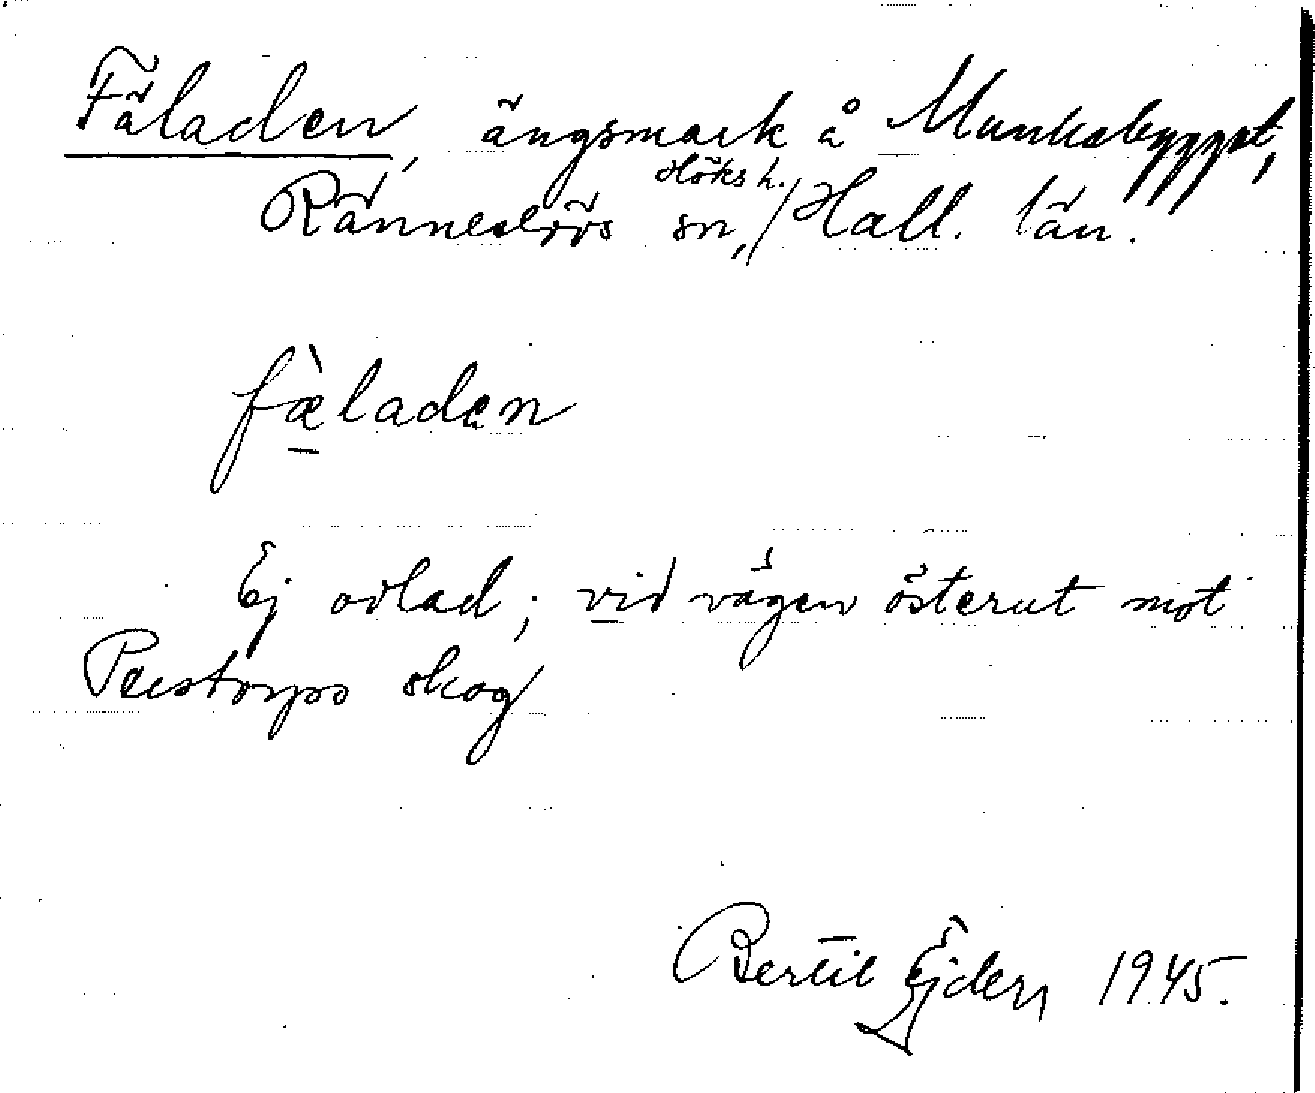 Fäladen, ängsmark å Munkabygget,
Ränneslövs sn, Höks h. Hall. län.
fæ̀laden
Ej odlad; vid vägen österut mot
Perstorps skog
Bertil Ejder 1945.